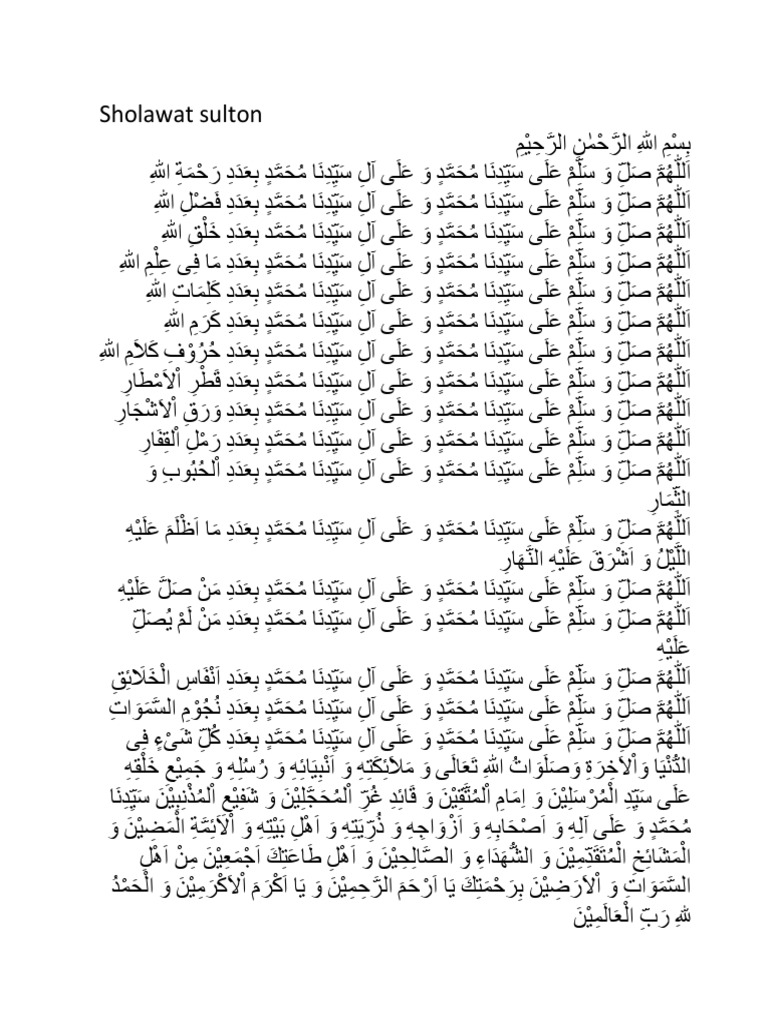 Sholawat sulton
بِسْمِ اللهِ الرَّحْمٰنِ الرَّحِيْمِ
اَللّٰهُمَّ صَلِّ وَ سَلِّمْ عَلَى سَيِّدِنَا مُحَمَّدٍ وَ عَلَى آلِ سَيِّدِنَا مُحَمَّدٍ بِعَدَدِ رَحْمَةِ اللهِ
اَللّٰهُمَّ صَلِّ وَ سَلِّمْ عَلَى سَيِّدِنَا مُحَمَّدٍ وَ عَلَى آلِ سَيِّدِنَا مُحَمَّدٍ بِعَدَدِ فَضْلِ اللهِ
اَللّٰهُمَّ صَلِّ وَ سَلِّمْ عَلَى سَيِّدِنَا مُحَمَّدٍ وَ عَلَى آلِ سَيِّدِنَا مُحَمَّدٍ بِعَدَدِ خَلْقِ اللهِ
اَللّٰهُمَّ صَلِّ وَ سَلِّمْ عَلَى سَيِّدِنَا مُحَمَّدٍ وَ عَلَى آلِ سَيِّدِنَا مُحَمَّدٍ بِعَدَدِ مَا فِى عِلْمِ اللهِ
اَللّٰهُمَّ صَلِّ وَ سَلِّمْ عَلَى سَيِّدِنَا مُحَمَّدٍ وَ عَلَى آلِ سَيِّدِنَا مُحَمَّدٍ بِعَدَدِ كَلِمَاتِ اللهِ
اَللّٰهُمَّ صَلِّ وَ سَلِّمْ عَلَى سَيِّدِنَا مُحَمَّدٍ وَ عَلَى آلِ سَيِّدِنَا مُحَمَّدٍ بِعَدَدِ كَرَمِ اللهِ
اَللّٰهُمَّ صَلِّ وَ سَلِّمْ عَلَى سَيِّدِنَا مُحَمَّدٍ وَ عَلَى آلِ سَيِّدِنَا مُحَمَّدٍ بِعَدَدِ حُرُوْفِ كَلاَمِ اللهِ
اَللّٰهُمَّ صَلِّ وَ سَلِّمْ عَلَى سَيِّدِنَا مُحَمَّدٍ وَ عَلَى آلِ سَيِّدِنَا مُحَمَّدٍ بِعَدَدِ قَطْرِ اْلاَمْطَارِ
اَللّٰهُمَّ صَلِّ وَ سَلِّمْ عَلَى سَيِّدِنَا مُحَمَّدٍ وَ عَلَى آلِ سَيِّدِنَا مُحَمَّدٍ بِعَدَدِ وَرَقِ اْلاَشْجَارِ
اَللّٰهُمَّ صَلِّ وَ سَلِّمْ عَلَى سَيِّدِنَا مُحَمَّدٍ وَ عَلَى آلِ سَيِّدِنَا مُحَمَّدٍ بِعَدَدِ رَمْلِ اْلقِفَارِ
اَللّٰهُمَّ صَلِّ وَ سَلِّمْ عَلَى سَيِّدِنَا مُحَمَّدٍ وَ عَلَى آلِ سَيِّدِنَا مُحَمَّدٍ بِعَدَدِ اْلحُبُوبِ وَ
الثِّمَارِ
اَللّٰهُمَّ صَلِّ وَ سَلِّمْ عَلَى سَيِّدِنَا مُحَمَّدٍ وَ عَلَى آلِ سَيِّدِنَا مُحَمَّدٍ بِعَدَدِ مَا اَظْلَمَ عَلَيْهِ
اللَّيْلُ وَ اَشْرَقَ عَلَيْهِ النَّهَارِ
اَللّٰهُمَّ صَلِّ وَ سَلِّمْ عَلَى سَيِّدِنَا مُحَمَّدٍ وَ عَلَى آلِ سَيِّدِنَا مُحَمَّدٍ بِعَدَدِ مَنْ صَلَّ عَلَيْهِ
اَللّٰهُمَّ صَلِّ وَ سَلِّمْ عَلَى سَيِّدِنَا مُحَمَّدٍ وَ عَلَى آلِ سَيِّدِنَا مُحَمَّدٍ بِعَدَدِ مَنْ لَمْ يُصَلِّ
عَلَيْهِ
اَللّٰهُمَّ صَلِّ وَ سَلِّمْ عَلَى سَيِّدِنَا مُحَمَّدٍ وَ عَلَى آلِ سَيِّدِنَا مُحَمَّدٍ بِعَدَدِ اَنْفَاسِ الْخَلَائِقِ
اَللّٰهُمَّ صَلِّ وَ سَلِّمْ عَلَى سَيِّدِنَا مُحَمَّدٍ وَ عَلَى آلِ سَيِّدِنَا مُحَمَّدٍ بِعَدَدِ نُجُوْمِ السَّمَوَاتِ
اَللّٰهُمَّ صَلِّ وَ سَلِّمْ عَلَى سَيِّدِنَا مُحَمَّدٍ وَ عَلَى آلِ سَيِّدِنَا مُحَمَّدٍ بِعَدَدِ كُلِّ شَىْءٍ فِى
الدُّنْيَا وَاْلاَخِرَةِ وَصَلَوَاتُ اللهِ تَعَالَى وَ مَلاَئِكَتِهِ وَ اَنْبِيَائِهِ وَ رُسُلِهِ وَ جَمِيْعِ خَلْقِهِ
عَلَى سَيِّدِ الْمُرْسَلِيْنَ وَ اِمَامِ اْلمُتَّقِيْنَ وَ قَائِدِ غُرِّ اْلمُحَجَّلِيْنَ وَ شَفِيْعِ اْلمُذْنِبِيْنَ سَيِّدِنَا
مُحَمَّدٍ وَ عَلَى آلِهِ وَ اَصْحَابِهِ وَ اَزْوَاجِهِ وَ ذُرِّيَتِهِ وَ اَهْلِ بَيْتِهِ وَ اْلاَئِمَّةِ الْمَضِيْنَ وَ
الْمَشَائِخِ الْمُتَقَدِّمِيْنَ وَ الشُّهَدَاءِ وَ الصَّالِحِيْنَ وَ اَهْلِ طَاعَتِكَ اَجْمَعِيْنَ مِنْ اَهْلِ
السَّمَوَاتِ وَ اْلاَرَضِيْنَ بِرَحْمَتِكَ يَا اَرْحَمَ الرَّحِمِيْنَ وَ يَا اَكْرَمَ اْلاَكْرَمِيْنَ وَ الْحَمْدُ
للهِ رَبِّ الْعَالَمِيْنَ